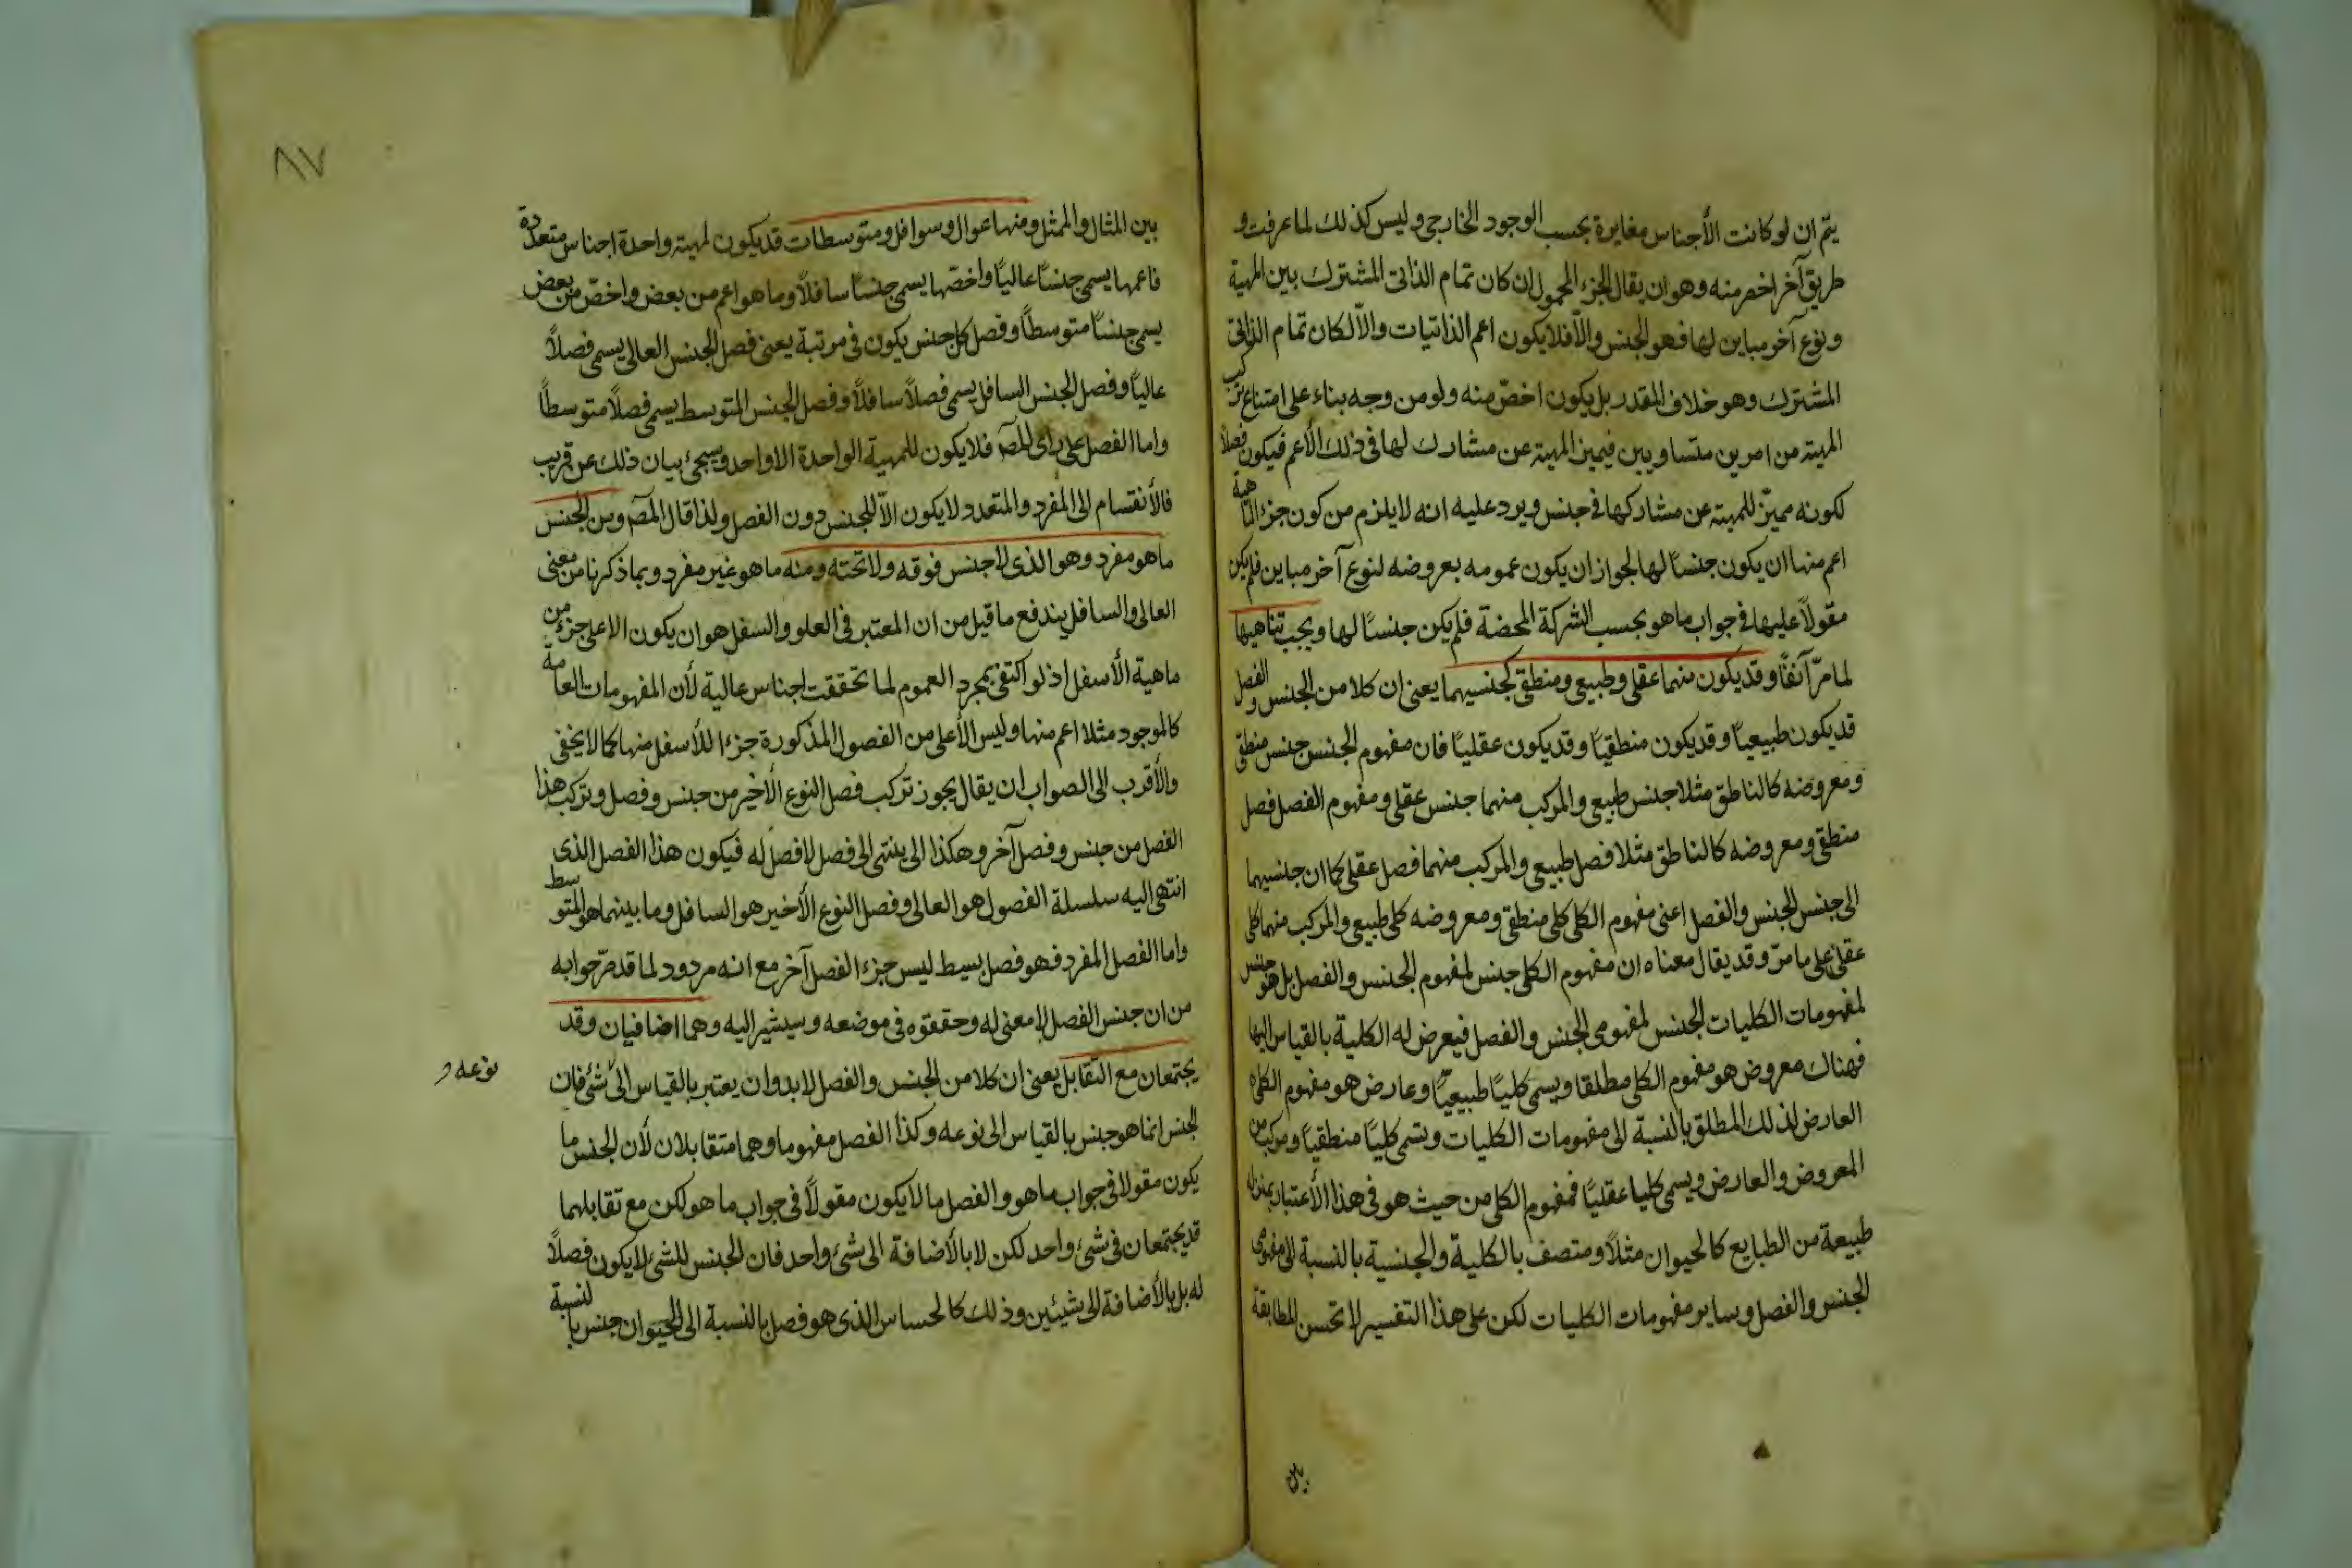 يتم ان لو كانت الأجناس مغايرة بحسب الوجود الخارجى وليس كذلك لما عرفت و
طريق آخر اخصر منه وهو ان يقال الجزء المحمول ان كان تمام الذاتى المشترك بين المهية
ونوع آخر مباين لها فهو الجنس والّا فلا يكون اعم الذاتيات والّا لكان تمام الذاتى
المشترك وهو خلاف المقدر بل يكون اخصّ منه ولو من وجه بناء على امتناع تركب
المهية من امرين متساويين فيميز المهية عن مشارك لها فى ذلك الأعم فيكون فصلًا
لكونه مميزّ للمهية عن مشاركها فى جنس ويرد عليه انه لا يلزم من كون جزء الماهية
اعم منها ان يكون جنسًا لها لجواز ان يكون عمومه بعروضه لنوع آخر مباين فلم يكن
مقولًا عليها فى جواب ما هو بحسب الشركة المحضة فلم يكن جنسًا لها ويجب تناهيها
لما مرّ آنفًا وقد يكون منهما عقلى وطبيعى ومنطقى كجنسيهما يعنى ان كلا من الجنس والفصل
قد يكون طبيعيًا وقد يكون منطقيًا وقد يكون عقليًا فان مفهوم الجنس جنس منطقى
ومعروضه كالناطق مثلا جنس طبيعى والمركب منهما جنس عقلى ومفهوم الفصل فصل
منطقى ومعروضه كالناطق مثلا فصل طبيعى والمركب منهما فصل عقلى كما ان جنسيهما
الى جنس الجنس والفصل اعنى مفهوم الكلى كلى منطقى ومعروضه كلى طبيعى والمركب منهما كلى
عقلى على ما مرّ وقد يقال معناه ان مفهوم الكلى جنس لمفهوم الجنس والفصل بل هو جنس
لمفهومات الكليات الجنس لمفهومى الجنس والفصل فيعرض له الكلية بالقياس اليها
فهناك معروض هو مفهوم الكلى مطلقا ويسمى كليًا طبيعيًا وعارض هو مفهوم الكلى
العارض لذلك المطلق بالنسبة الى مفهومات الكليات وتسمى كليًا منطقيًا ومركب من
المعروض والعارض ويسمى كليا عقليًا فمفهوم الكلى من حيث هو فى هذا الأعتبار بمنزلة
طبيعة من الطبايع كالحيوان مثلًا ومتصف بالكلية والجنسية بالنسبة الى مفهومى
الجنس والفصل وساير مفهومات الكليات لكن على هذا التفسير لا تحسن المطابقة
بين
٨٧
بين المثال والممثل ومنها عوال وسوافل ومتوسطات قد يكون لمهية واحدة اجناس متعددة
فاعمها يسمى جنسًا عاليًا واخصّها يسمى جنسًا سافلًا وما هو اعم من بعض واخصّ من بعض
يسمى جنسًا متوسطًا وفصل كل جنس يكون فى مرتبة يعنى فصل الجنس العالى يسمى فصلًا
عاليًا وفصل الجنس السافل يسمى فصلًا سافلًا وفصل الجنس المتوسط يسمى فصلًا متوسطًا
واما الفصل على راى المصّ فلا يكون للمهية الواحدة الا واحد وسيجئ بيان ذلك عن قريب
فالأنقسام الى المفرد والمتعدد لا يكون الّا للجنس دون الفصل ولذا قال المصّ ومن الجنس
ما هو مفرد وهو الذى لا جنس فوقه ولا تحته ومنه ما هو غير مفرد وبما ذكرنا من معنى
العالى والسافل يندفع ما قيل من ان المعتبر فى العلو والسفل هو ان يكون الاعلى جزء من
ماهية الأسفل اذ لو اكتفى بمجرد العموم لما تحققت اجناس عالية لأن المفهومات العامة
كالموجود مثلا اعم منها وليس الأعلى من الفصول المذكورة جزءا للأسفل منها كما لا يخفى
والأقرب الى الصواب ان يقال يجوز تركب فصل النوع الأخير من جنس وفصل وتركب هذا
الفصل من جنس وفصل آخر وهكذا الى ينتهى الى فصل لا فصل له فيكون هذا الفصل الذى
انتهى اليه سلسلة الفصول هو العالى وفصل النوع الأخير هو السافل وما بينهما هو المتوسط
واما الفصل المفرد فهو فصل بسيط ليس جزء الفصل آخر مع انه مردود لما قد مرّ جوابه
من ان جنس الفصل لا معنى له وحققوه فى موضعه وسيشير اليه وهما اضافيان وقد
يجتمعان مع التقابل يعنى ان كلا من الجنس والفصل لابد وان يعتبر بالقياس الى شئ فان
نوعه و
الجنس انما هو جنس بالقياس الى نوعه وكذا الفصل مفهوما وهما متقابلان لأن الجنس ما
يكون مقولا فى جواب ما هو والفصل ما لا يكون مقولًا فى جواب ما هو لكن مع تقابلهما
قد يجتمعان فى شئ واحد لكن لا بالأضافة الى شئ واحد فان الجنس للشئ لا يكون فصلًا
له بل بالأضافة الى شيئين وذلك كالحساس الذى هو فصل بالنسبة الى الحيوان جنس بالنسبة